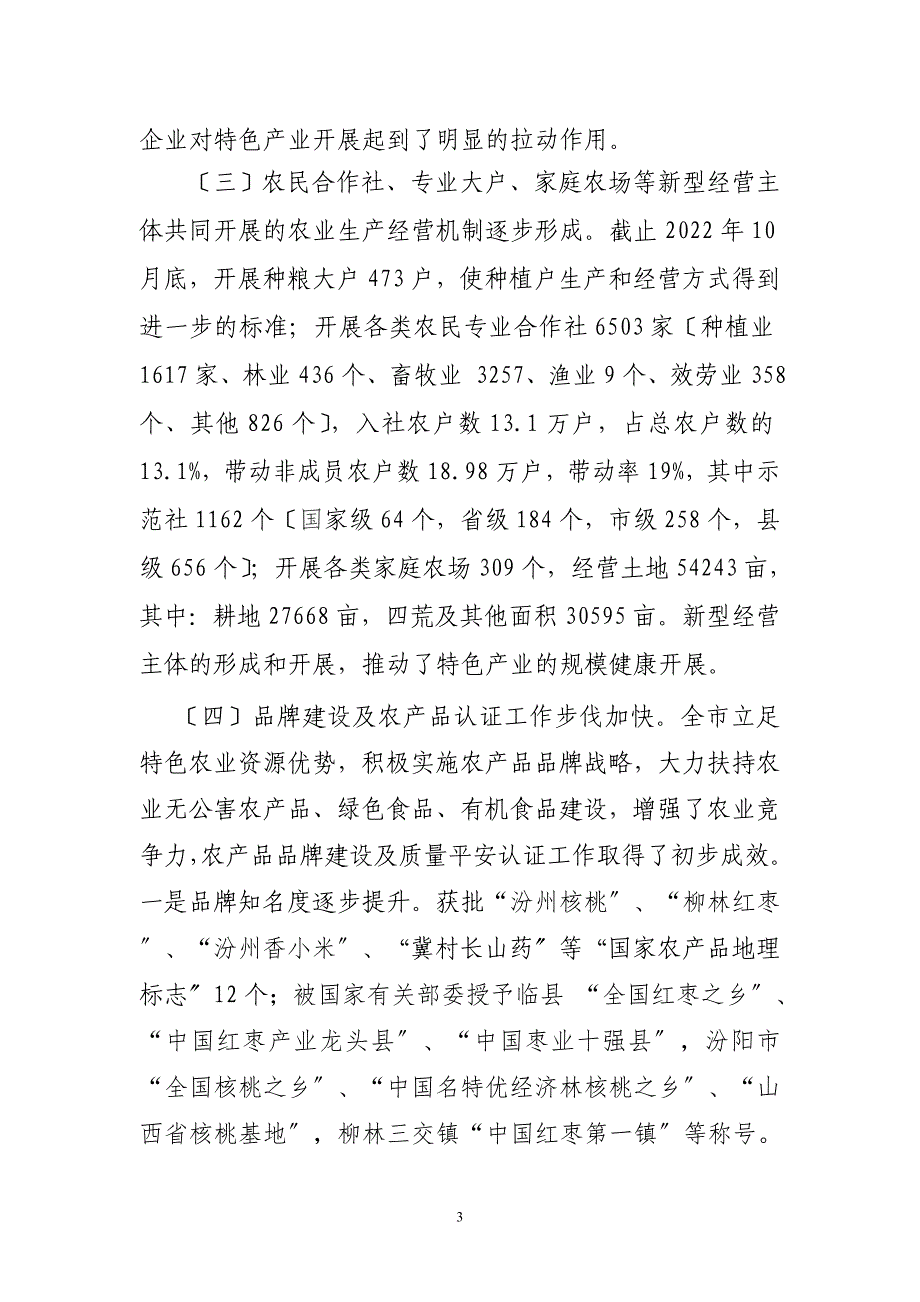 企业对特色产业开展起到了明显的拉动作用。
〔三〕农民合作社、专业大户、家庭农场等新型经营主
体共同开展的农业生产经营机制逐步形成。截止 2022 年 10
月底，开展种粮大户 473 户，使种植户生产和经营方式得到
进一步的标准；开展各类农民专业合作社 6503 家〔种植业
1617 家、林业 436 个、畜牧业 3257、渔业 9 个、效劳业 358
个、其他 826 个〕，入社农户数 13.1 万户，占总农户数的
13.1%，带动非成员农户数 18.98 万户，带动率 19%，其中示
范社 1162 个〔国家级 64 个，省级 184 个，市级 258 个，县
级 656 个〕；开展各类家庭农场 309 个，经营土地 54243 亩，
其中：耕地 27668 亩，四荒及其他面积 30595 亩。新型经营
主体的形成和开展，推动了特色产业的规模健康开展。
〔四〕品牌建设及农产品认证工作步伐加快。全市立足
特色农业资源优势，积极实施农产品品牌战略，大力扶持农
业无公害农产品、绿色食品、有机食品建设，增强了农业竞
争力，农产品品牌建设及质量平安认证工作取得了初步成效。
一是品牌知名度逐步提升。获批“汾州核桃〞、“柳林红枣
〞、“汾州香小米〞、“冀村长山药〞等“国家农产品地理
标志〞12 个；被国家有关部委授予临县 “全国红枣之乡〞、
“中国红枣产业龙头县〞、“中国枣业十强县〞，汾阳市
“全国核桃之乡〞、“中国名特优经济林核桃之乡〞、“山
西省核桃基地〞，柳林三交镇“中国红枣第一镇〞等称号。
3